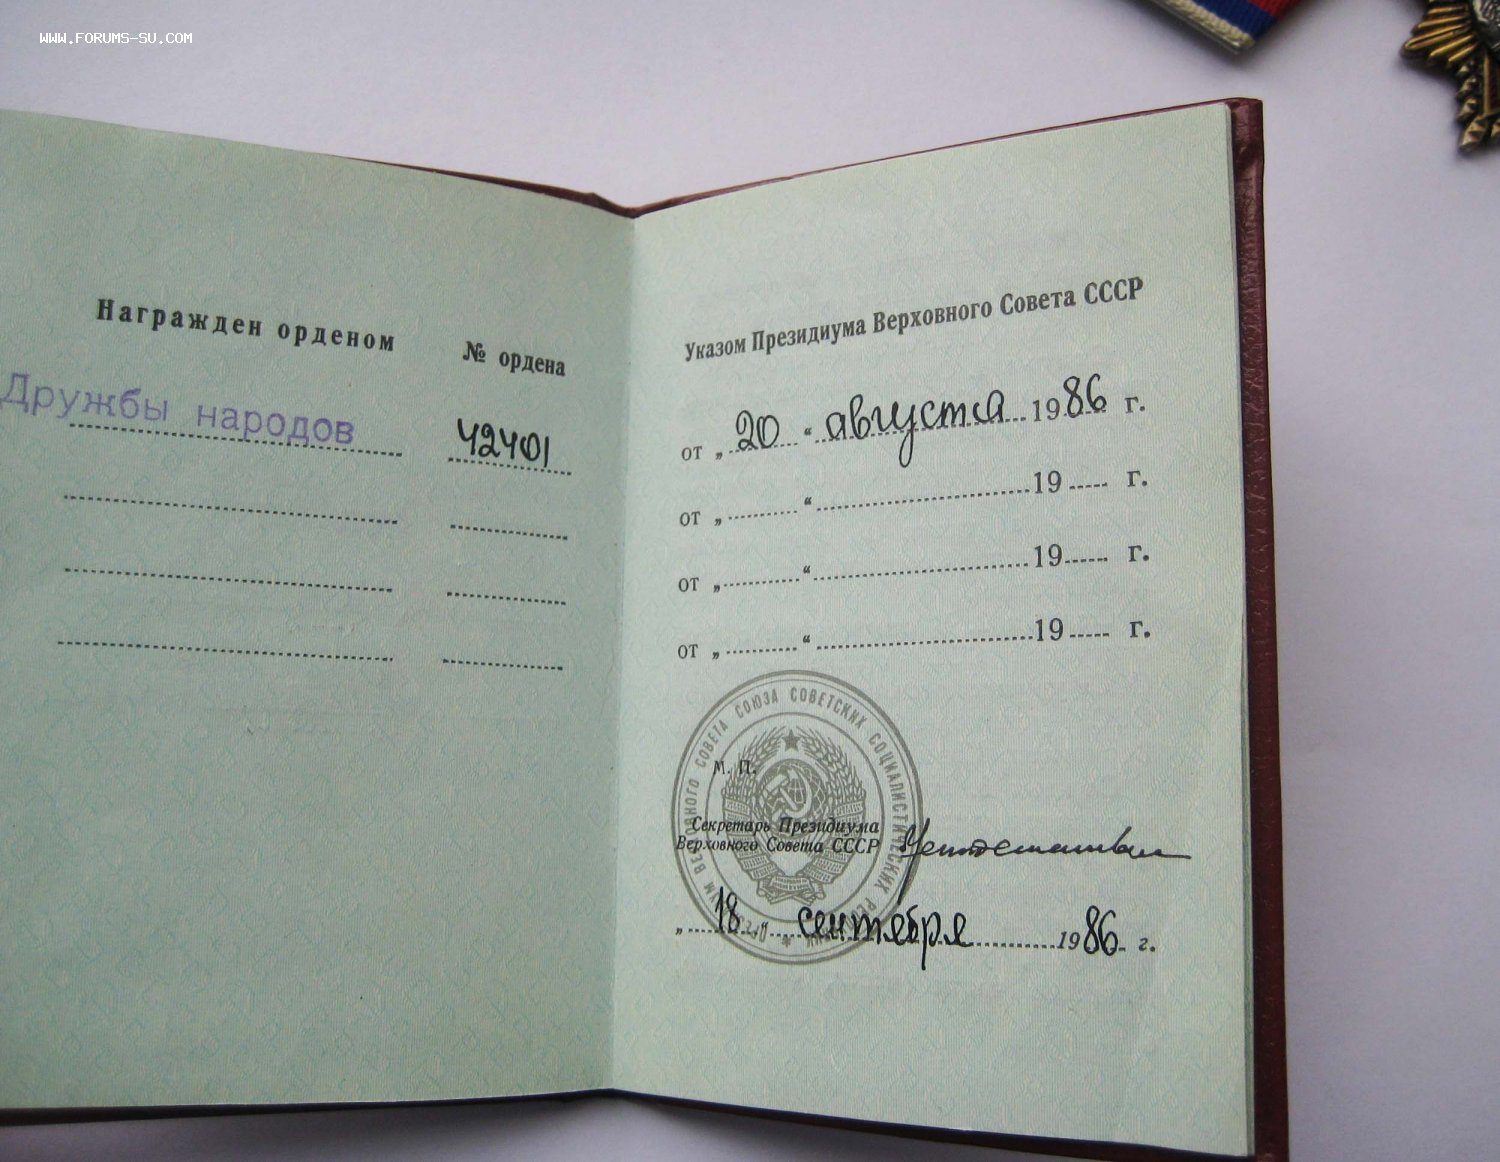 WWW.FORUMS-SU.COM
Награжден орденом
№ ордена
Дружбы народов
42401
Указом Президиума Верховного Совета СССР
от „ 20 “ августа 1986 г.
от „ “ 19 г.
от „ “ 19 г.
от „ “ 19 г.
СОВЕТА СОЮЗА СОВЕТСКИХ СОЦИАЛИСТИЧЕСКИХ
М. П.
Секретарь Президиума
Верховного Совета СССР
„ 18 “ сентября 1986 г.